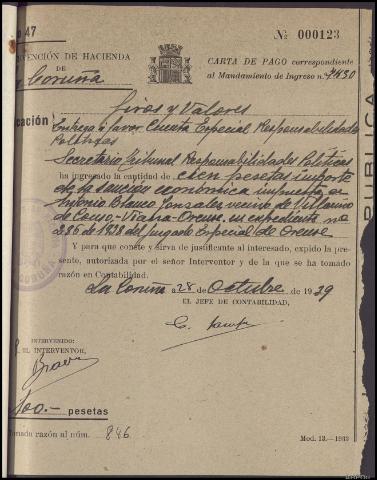 47
Nº 000123
VENCIÓN DE HACIENDA
DE
Coruña
CARTA DE PAGO correspondiente
al Mandamiento de Ingreso n.º 4430
Giros y Valores
cación
Entrega a favor Cuenta Especial Responsabilidades
Políticas
Secretario Tribunal Responsabilidades Políticas
ha ingresado la cantidad de cien pesetas importe
de la sanción económica impuesta a
Antonio Blanco Gonzalez vecino de Villarino
de Conso-Viana-Orense en expediente nº
236 de 1938 del Juzgado Especial de Orense
Y para que conste y sirva de justificante al interesado, expido la pre-
sente, autorizada por el señor Interventor y de la que se ha tomado
razón en Contabilidad.
La Coruña a 28 de Octubre de 1939
EL JEFE DE CONTABILIDAD,
INTERVENIDO:
EL INTERVENTOR,
100.- pesetas
Tomada razón al núm. 846
Mod. 13.-1939